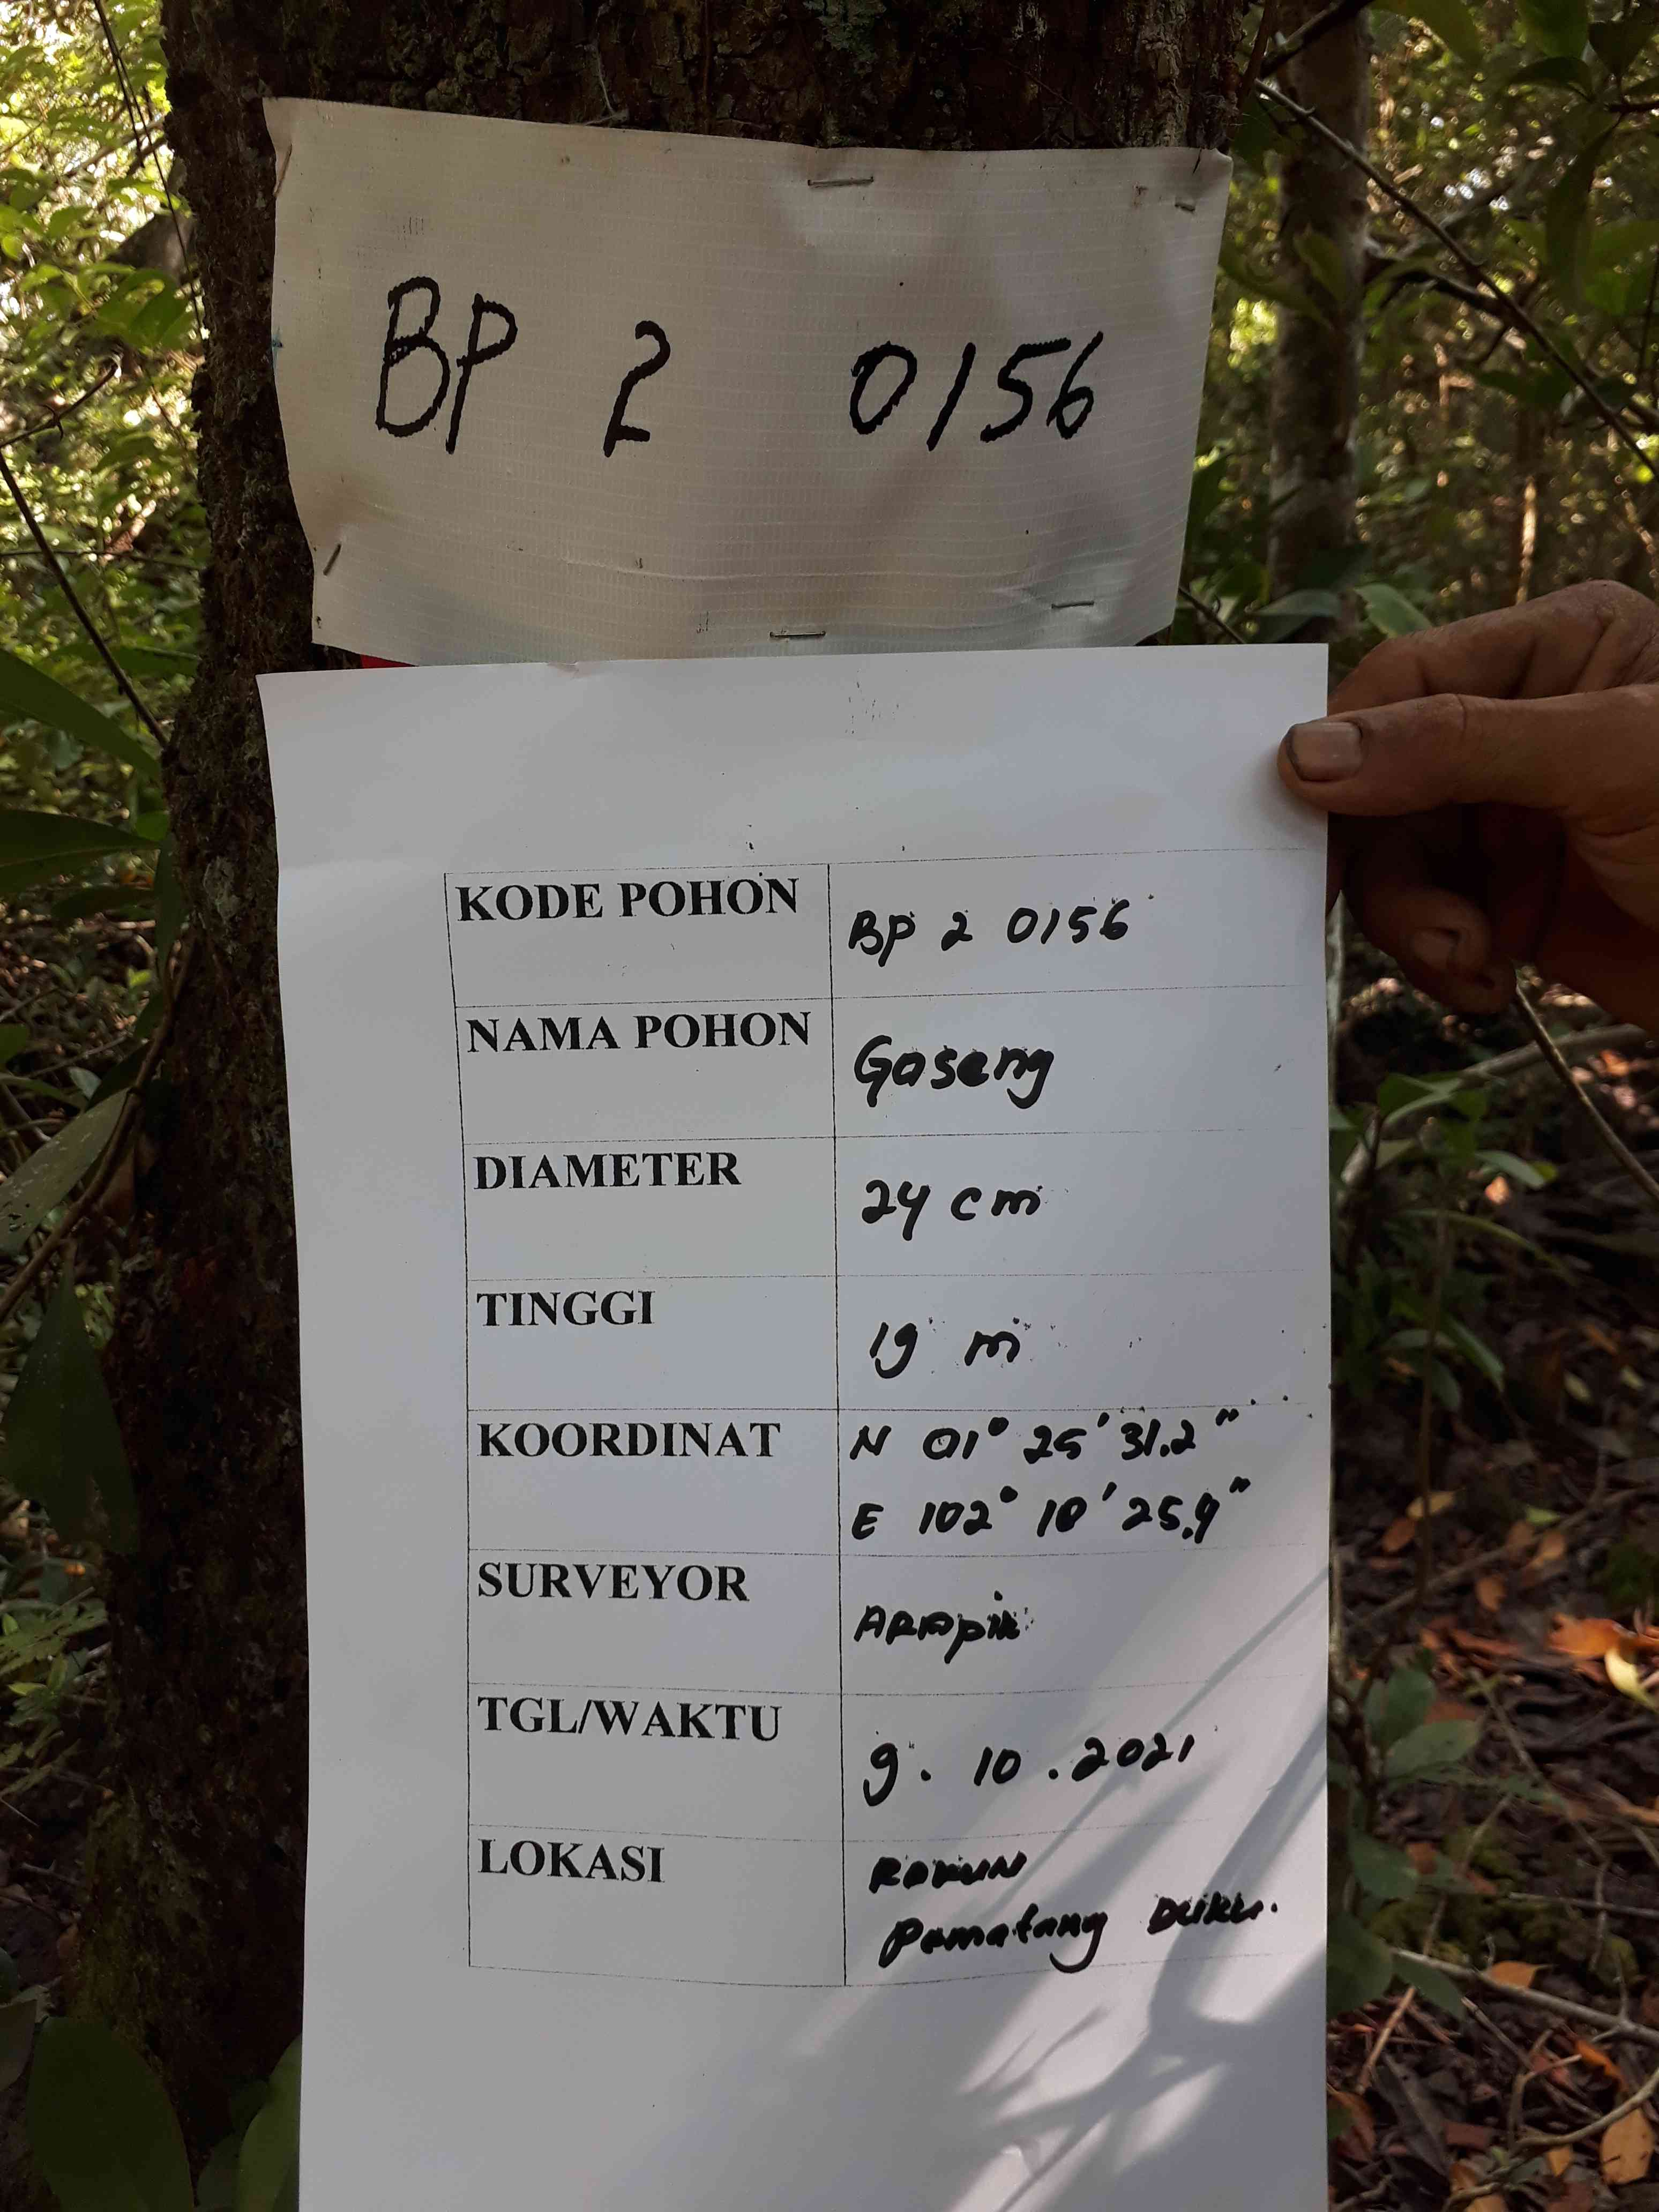 BP 2 0156
KODE POHON BP 2 0156
NAMA POHON Gaseng
DIAMETER 24 cm
TINGGI 19 m
KOORDINAT N 01° 25' 31.2"
E 102° 10' 25.9"
SURVEYOR
TGL/WAKTU 9. 10 . 2021
LOKASI
Pematang Duku.